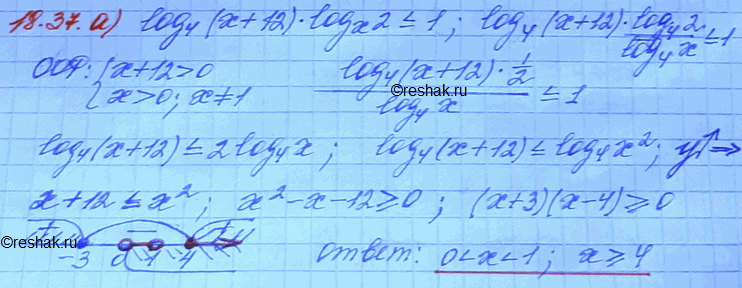 18.37. а) log₄(x+12)·logₓ2 ≤ 1 ; log₄(x+12)·log₄2/log₄x ≤ 1
ООФ: {x+12>0
{x>0; x≠1
log₄(x+12)·1/2 / log₄x ≤ 1
©reshak.ru
log₄(x+12) ≤ 2log₄x ; log₄(x+12) ≤ log₄x² ; y↑ ⇒
x+12 ≤ x² ; x²-x-12 ≥ 0 ; (x+3)(x-4) ≥ 0
+ − +
©reshak.ru
-3 0 1 4
ответ: 0<x<1 ; x ≥ 4
©reshak.ru